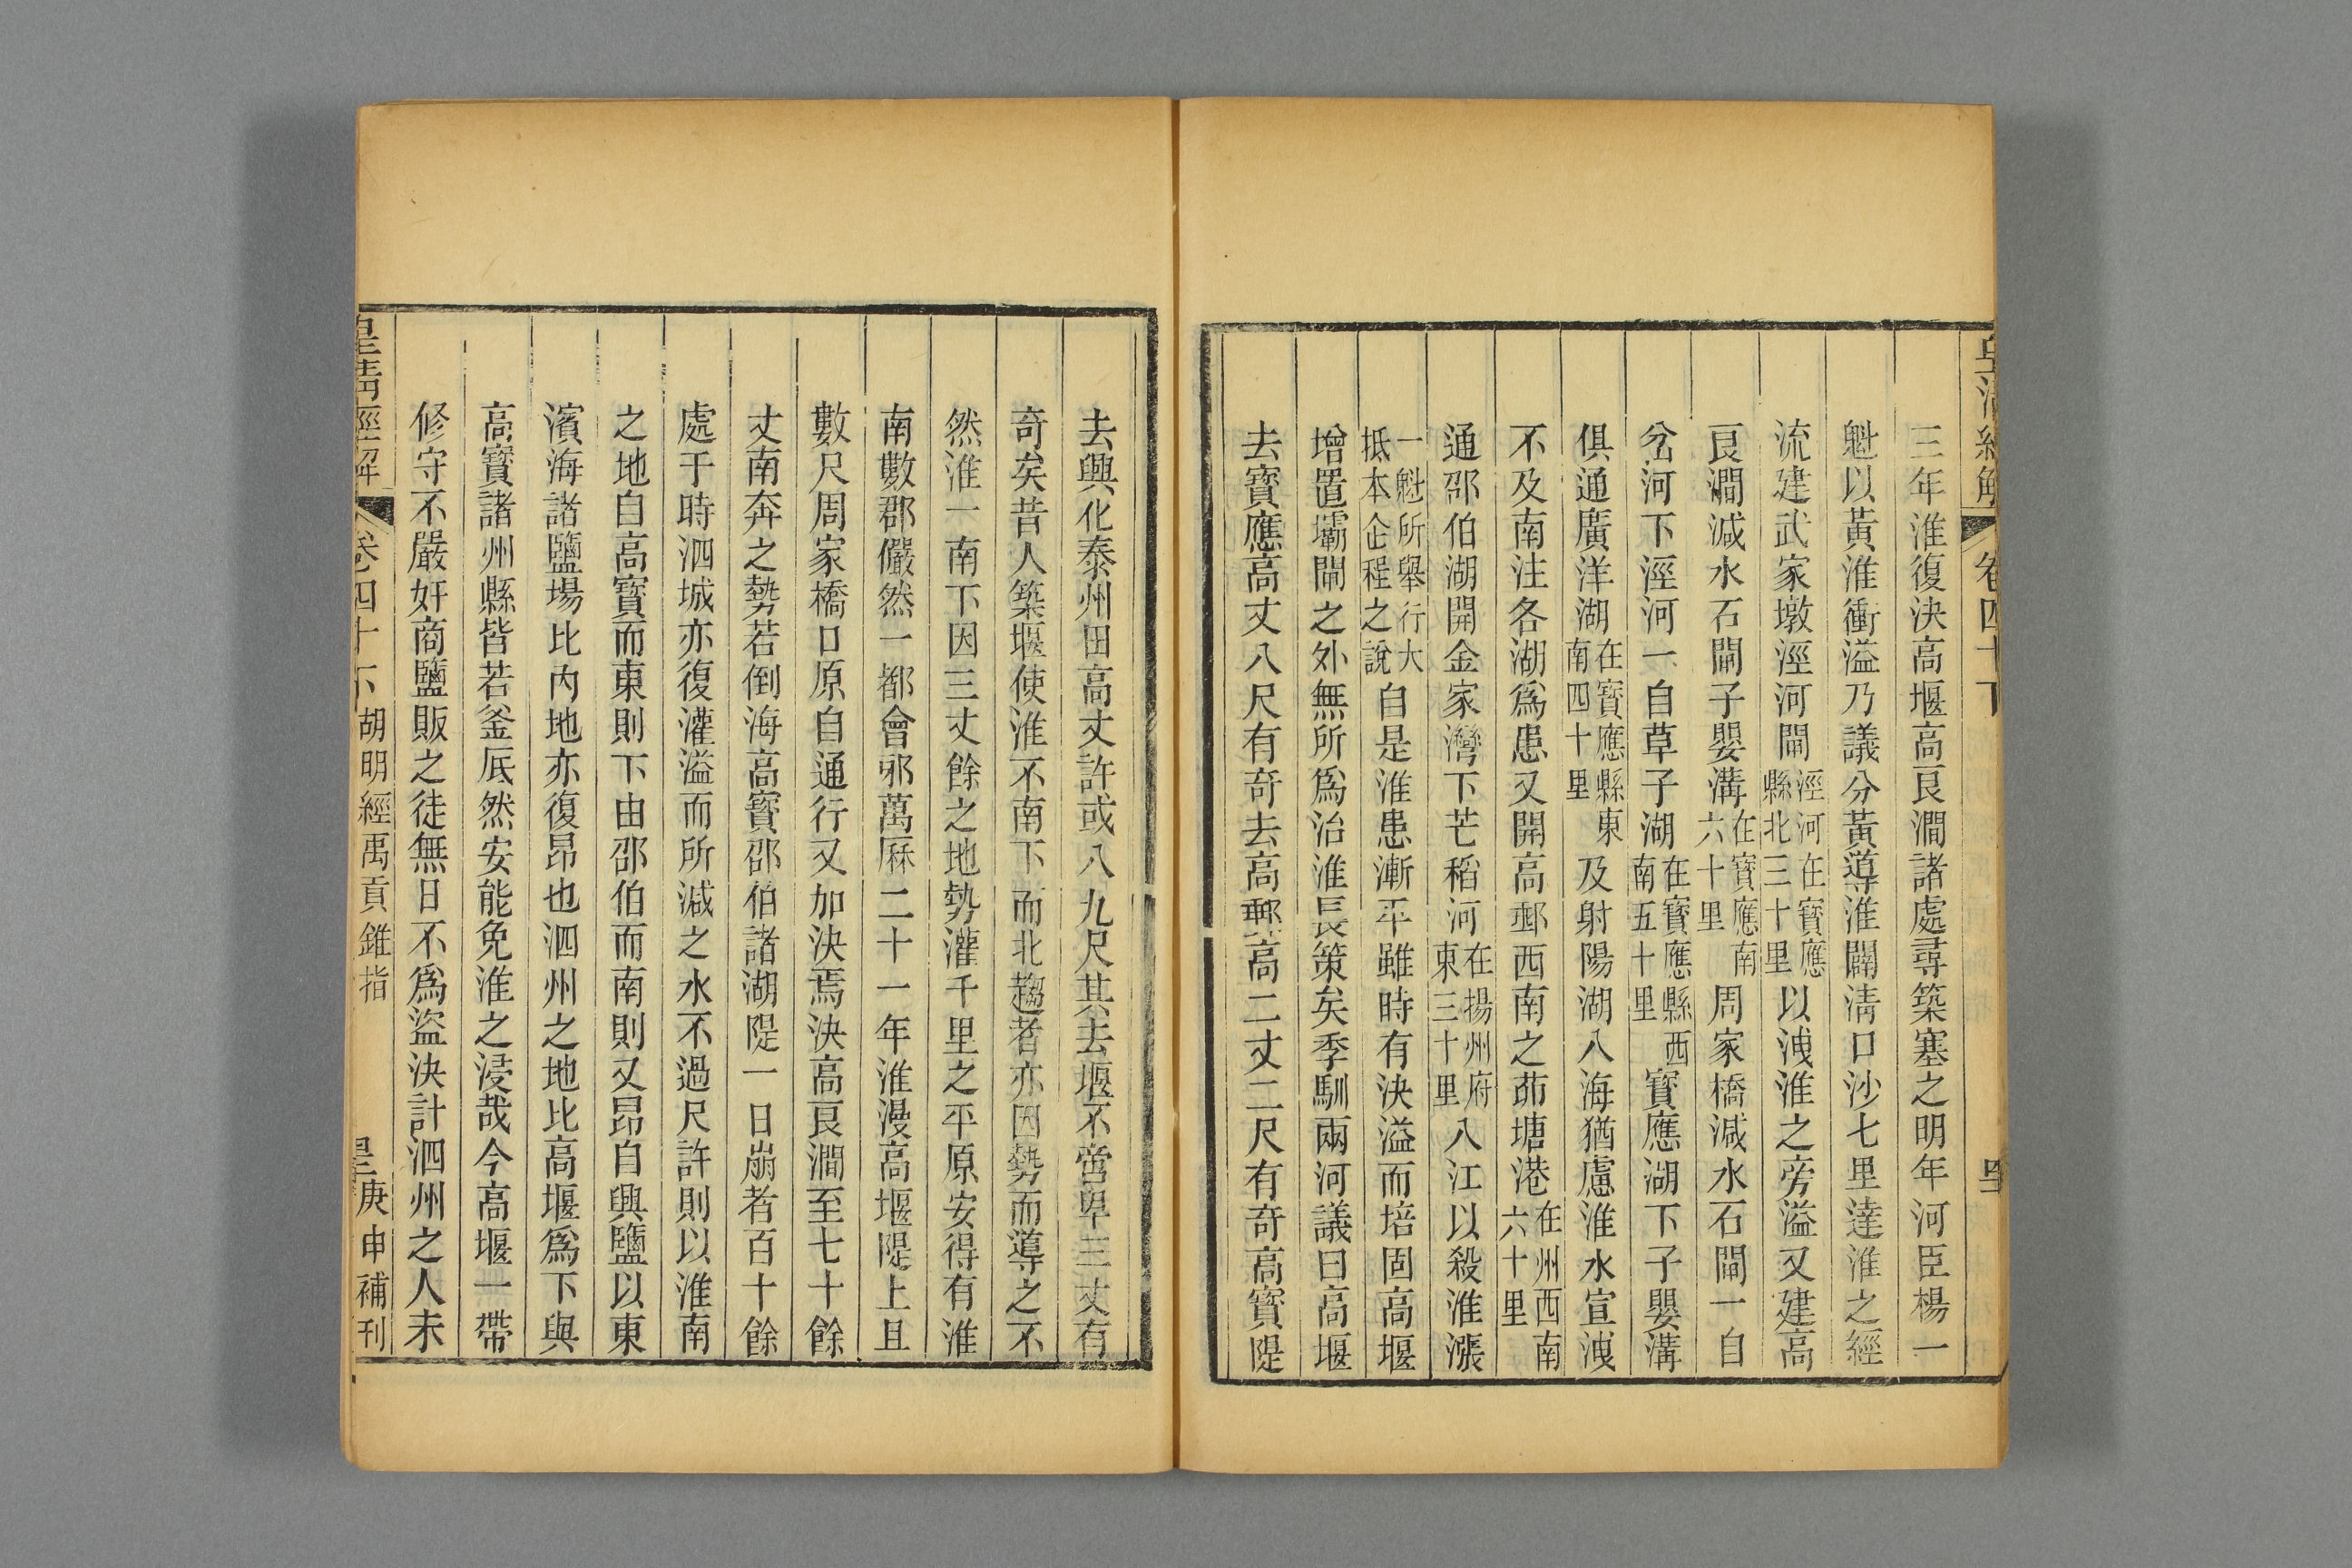 皇清經解 卷四十下
三年淮復決高堰高良澗諸處尋築塞之明年河臣楊一
魁以黃淮衝溢乃議分黃導淮闢清口沙七里達淮之經
流建武家墩涇河閘涇河在寶應縣北三十里以洩淮之旁溢又建高
良澗減水石閘子嬰溝在寶應南六十里周家橋減水石閘一自
岔河下涇河一自草子湖在寶應縣西南五十里寶應湖下子嬰溝
俱通廣洋湖在寶應縣東南四十里及射陽湖入海猶慮淮水宣洩
不及南注各湖爲患又開高郵西南之茆塘港在州西南六十里
通邵伯湖開金家灣下芒稻河在揚州府東三十里入江以殺淮漲
一魁所舉行大抵本企程之說自是淮患漸平雖時有決溢而培固高堰
增置壩閘之外無所爲治淮長策矣季馴兩河議曰高堰
去寶應高丈八尺有奇去高郵高二丈二尺有奇高寶隄
去興化泰州田高丈許或八九尺其去堰不啻卑三丈有
奇矣昔人築堰使淮不南下而北趨者亦因勢而導之不
然淮一南下因三丈餘之地勢灌千里之平原安得有淮
南數郡儼然一都會邪萬厤二十一年淮漫高堰隄上且
數尺周家橋口原自通行又加決焉決高良澗至七十餘
丈南奔之勢若倒海高寶邵伯諸湖隄一日崩者百十餘
處于時泗城亦復灌溢而所減之水不過尺許則以淮南
之地自高寶而東則下由邵伯而南則又昂自興鹽以東
濱海諸鹽場比內地亦復昂也泗州之地比高堰爲下與
高寶諸州縣皆若釜底然安能免淮之浸哉今高堰一帶
修守不嚴奸商鹽販之徒無日不爲盜決計泗州之人未
皇清經解 卷四十下 胡明經禹貢錐指 庚申補刊